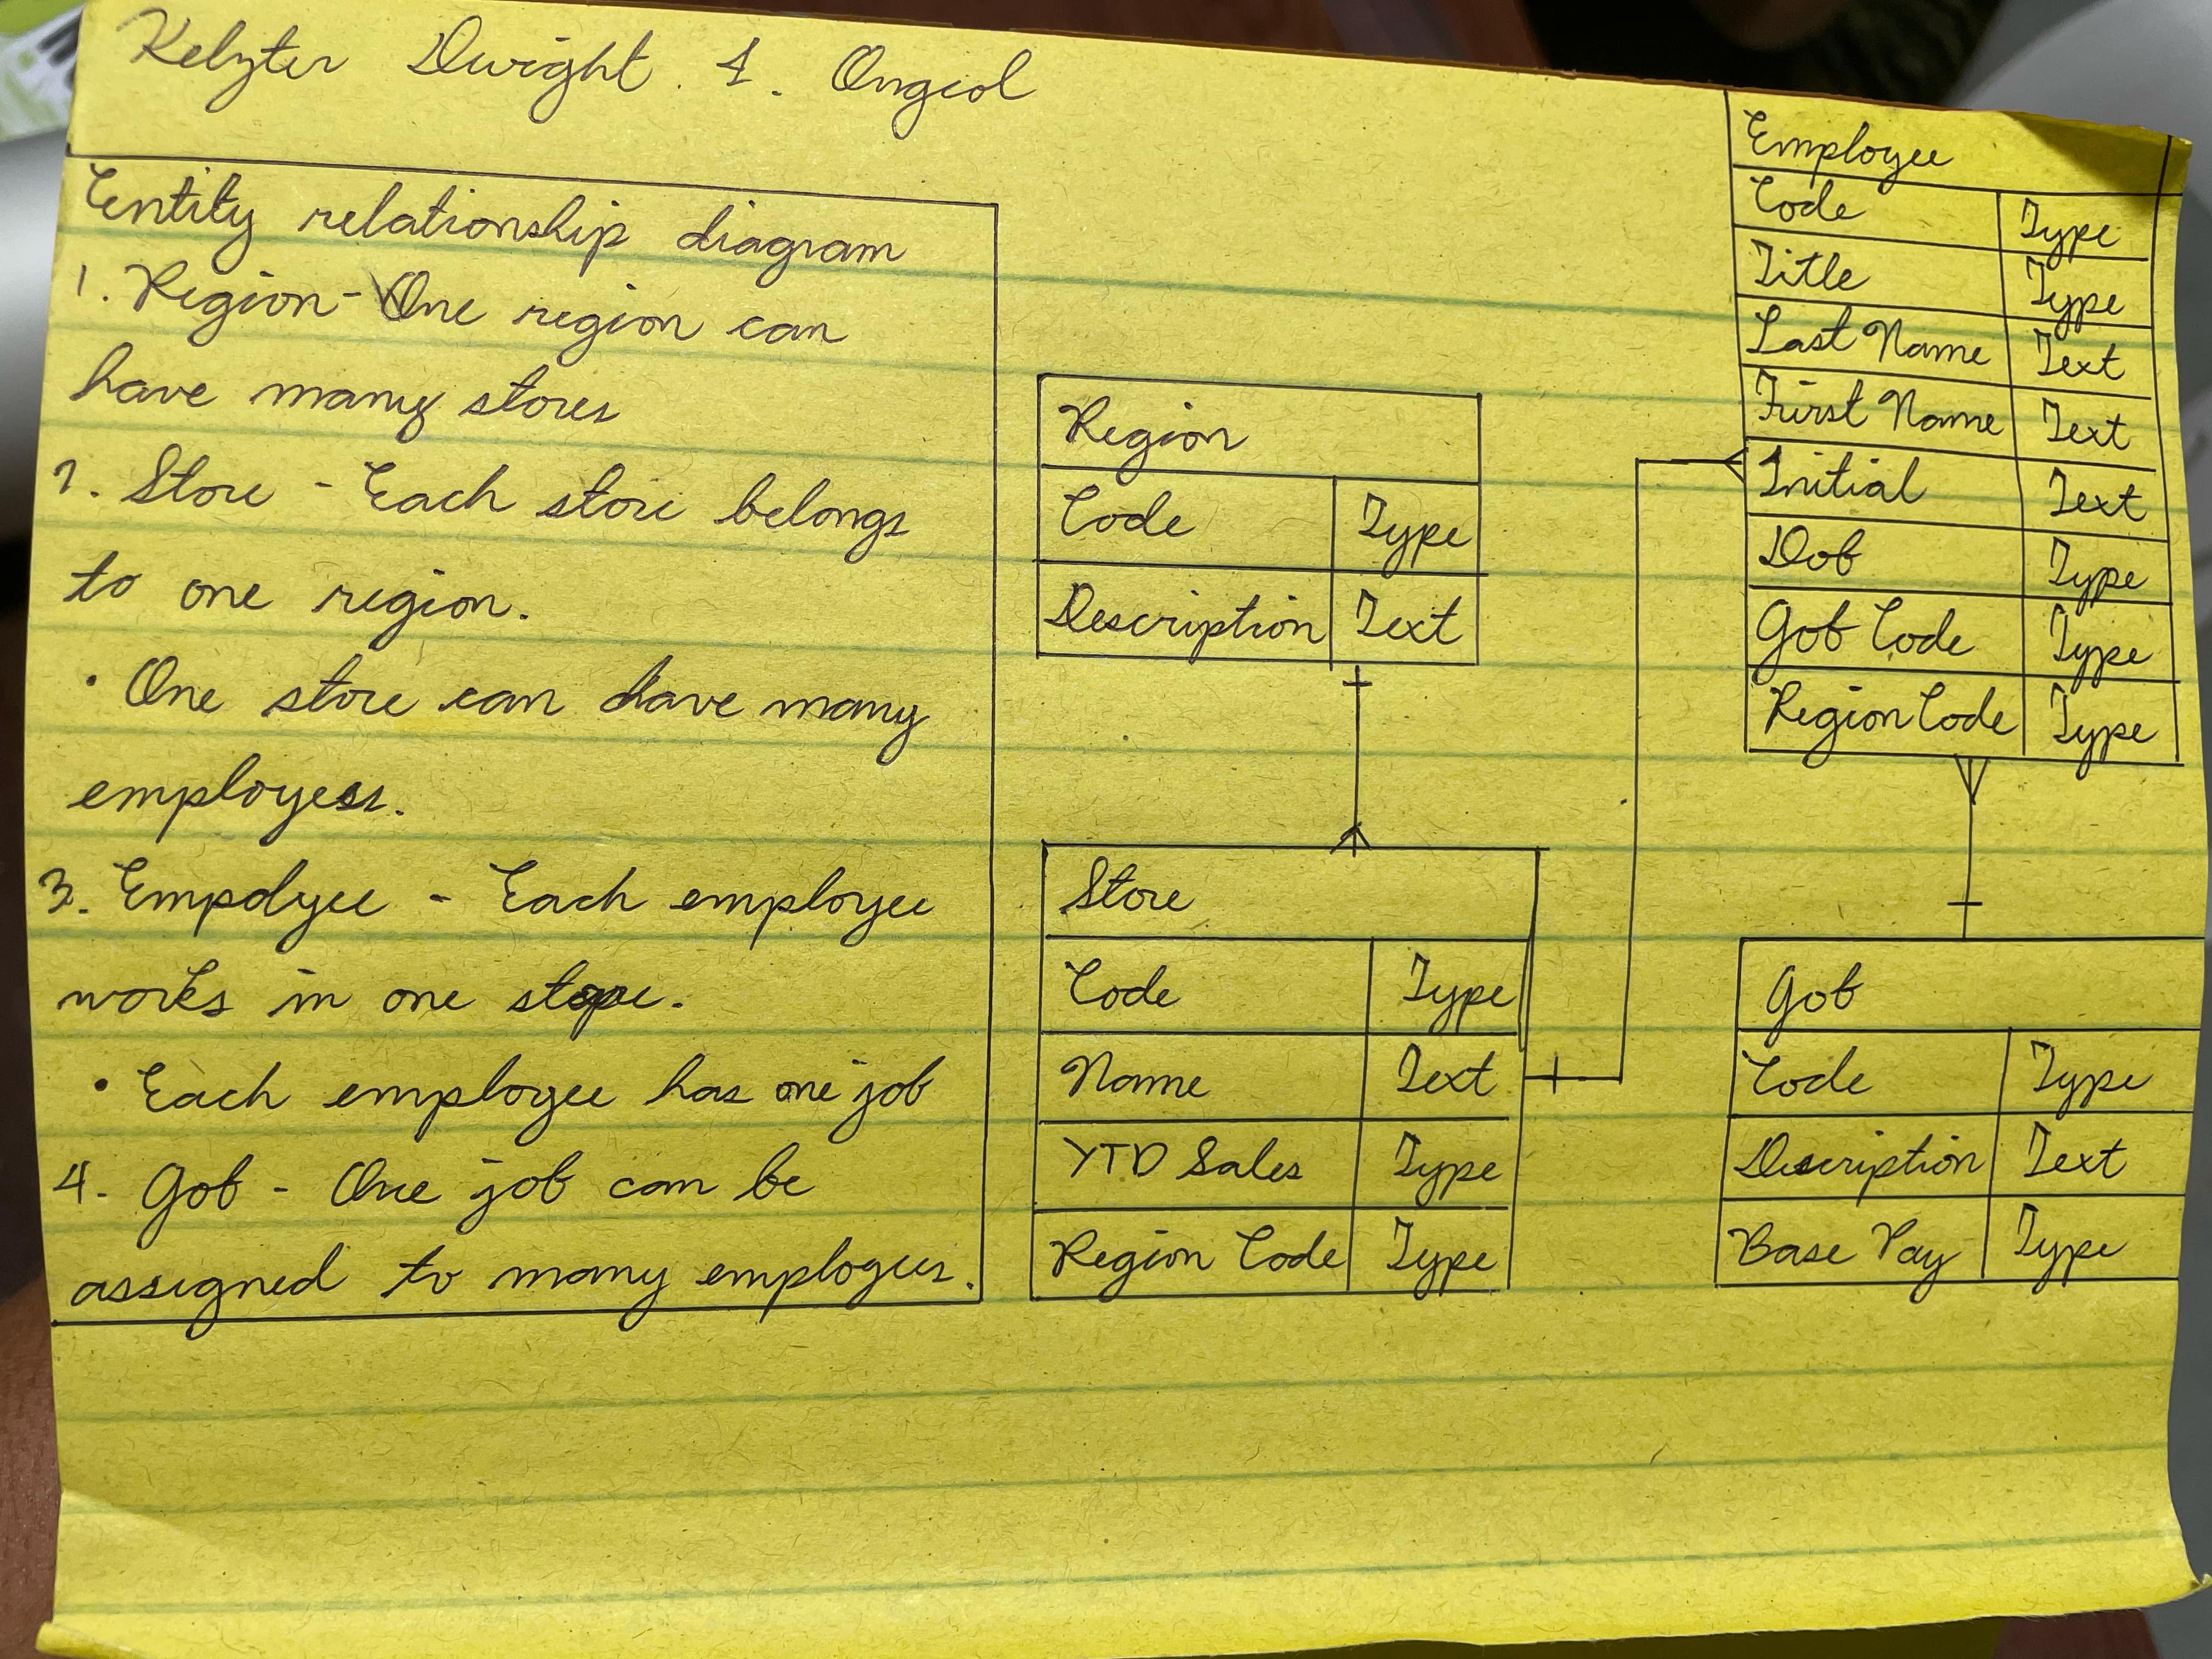 Kelzter Dwight . A . Ongcol
Entity relationship diagram
1. Region - One region can
have many stores
2. Store - Each store belongs
to one region.
• One store can have many
employees.
3. Empolyee - Each employee
works in one store.
• Each employee has one job
4. Job - One job can be
assigned to many employees.
Region
Code Type
Description Text
Store
Code Type
Name Text
YTD Sales Type
Region Code Type
Employee
Code Type
Title Type
Last Name Text
First Name Text
Initial Text
Dob Type
Job Code Type
Region Code Type
Job
Code Type
Description Text
Base Pay Type